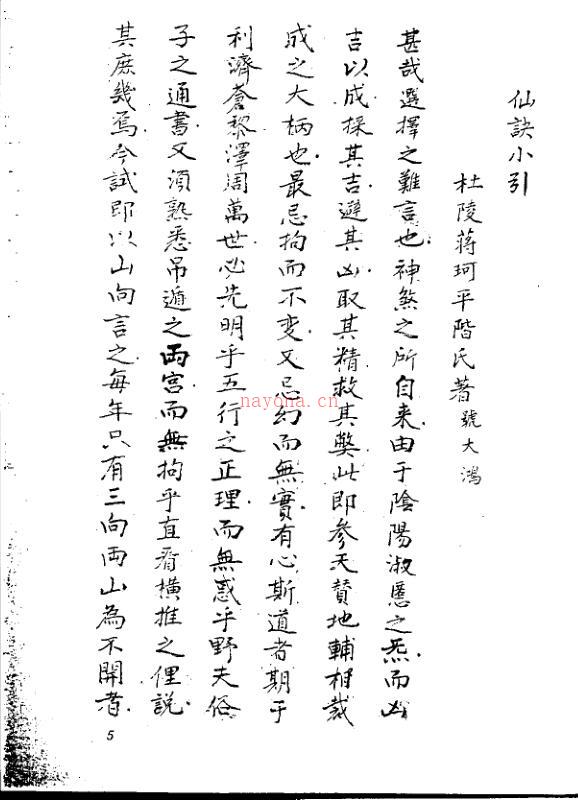 仙訣小引
杜陵蔣珂平階氏著號大鴻
甚哉選擇之難言也神煞之所自来由于陰陽淑慝之炁而凶
吉以成採其吉避其凶取其精救其獘此即参天賛地輔相裁
成之大柄也最忌拘而不变又忌幻而無實有心斯道者期于
利濟蒼黎澤周萬世必先明乎五行之正理而無惑乎野夫俗
子之通書又須熟悉吊遁之両宫而無拘乎直看横推之俚説
其庶幾焉今試即以山向言之每年只有三向両山為不開者
5
nayona.cn